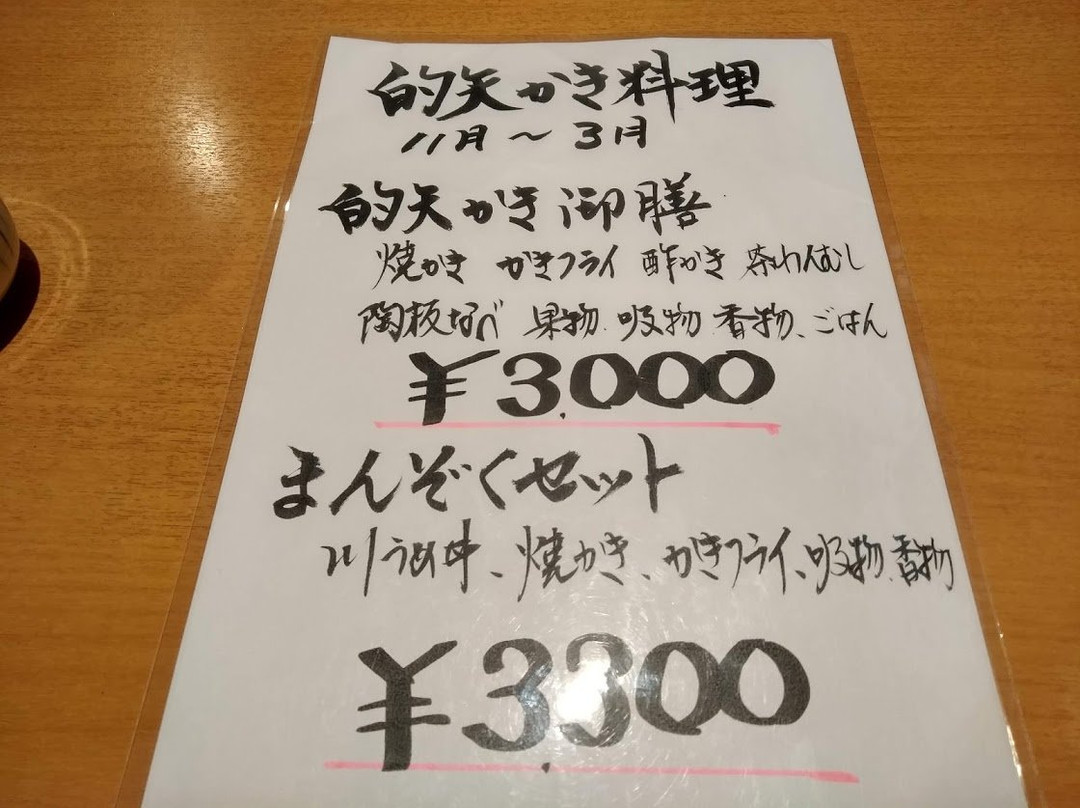 的矢かき料理
11月〜3月
的矢かき御膳
焼かき かきフライ 酢かき 茶わんむし
陶板なべ 果物、吸物 香物、ごはん
¥3,000
まんぞくセット
川うめ丼、焼かき、かきフライ、吸物、香物
¥3,300